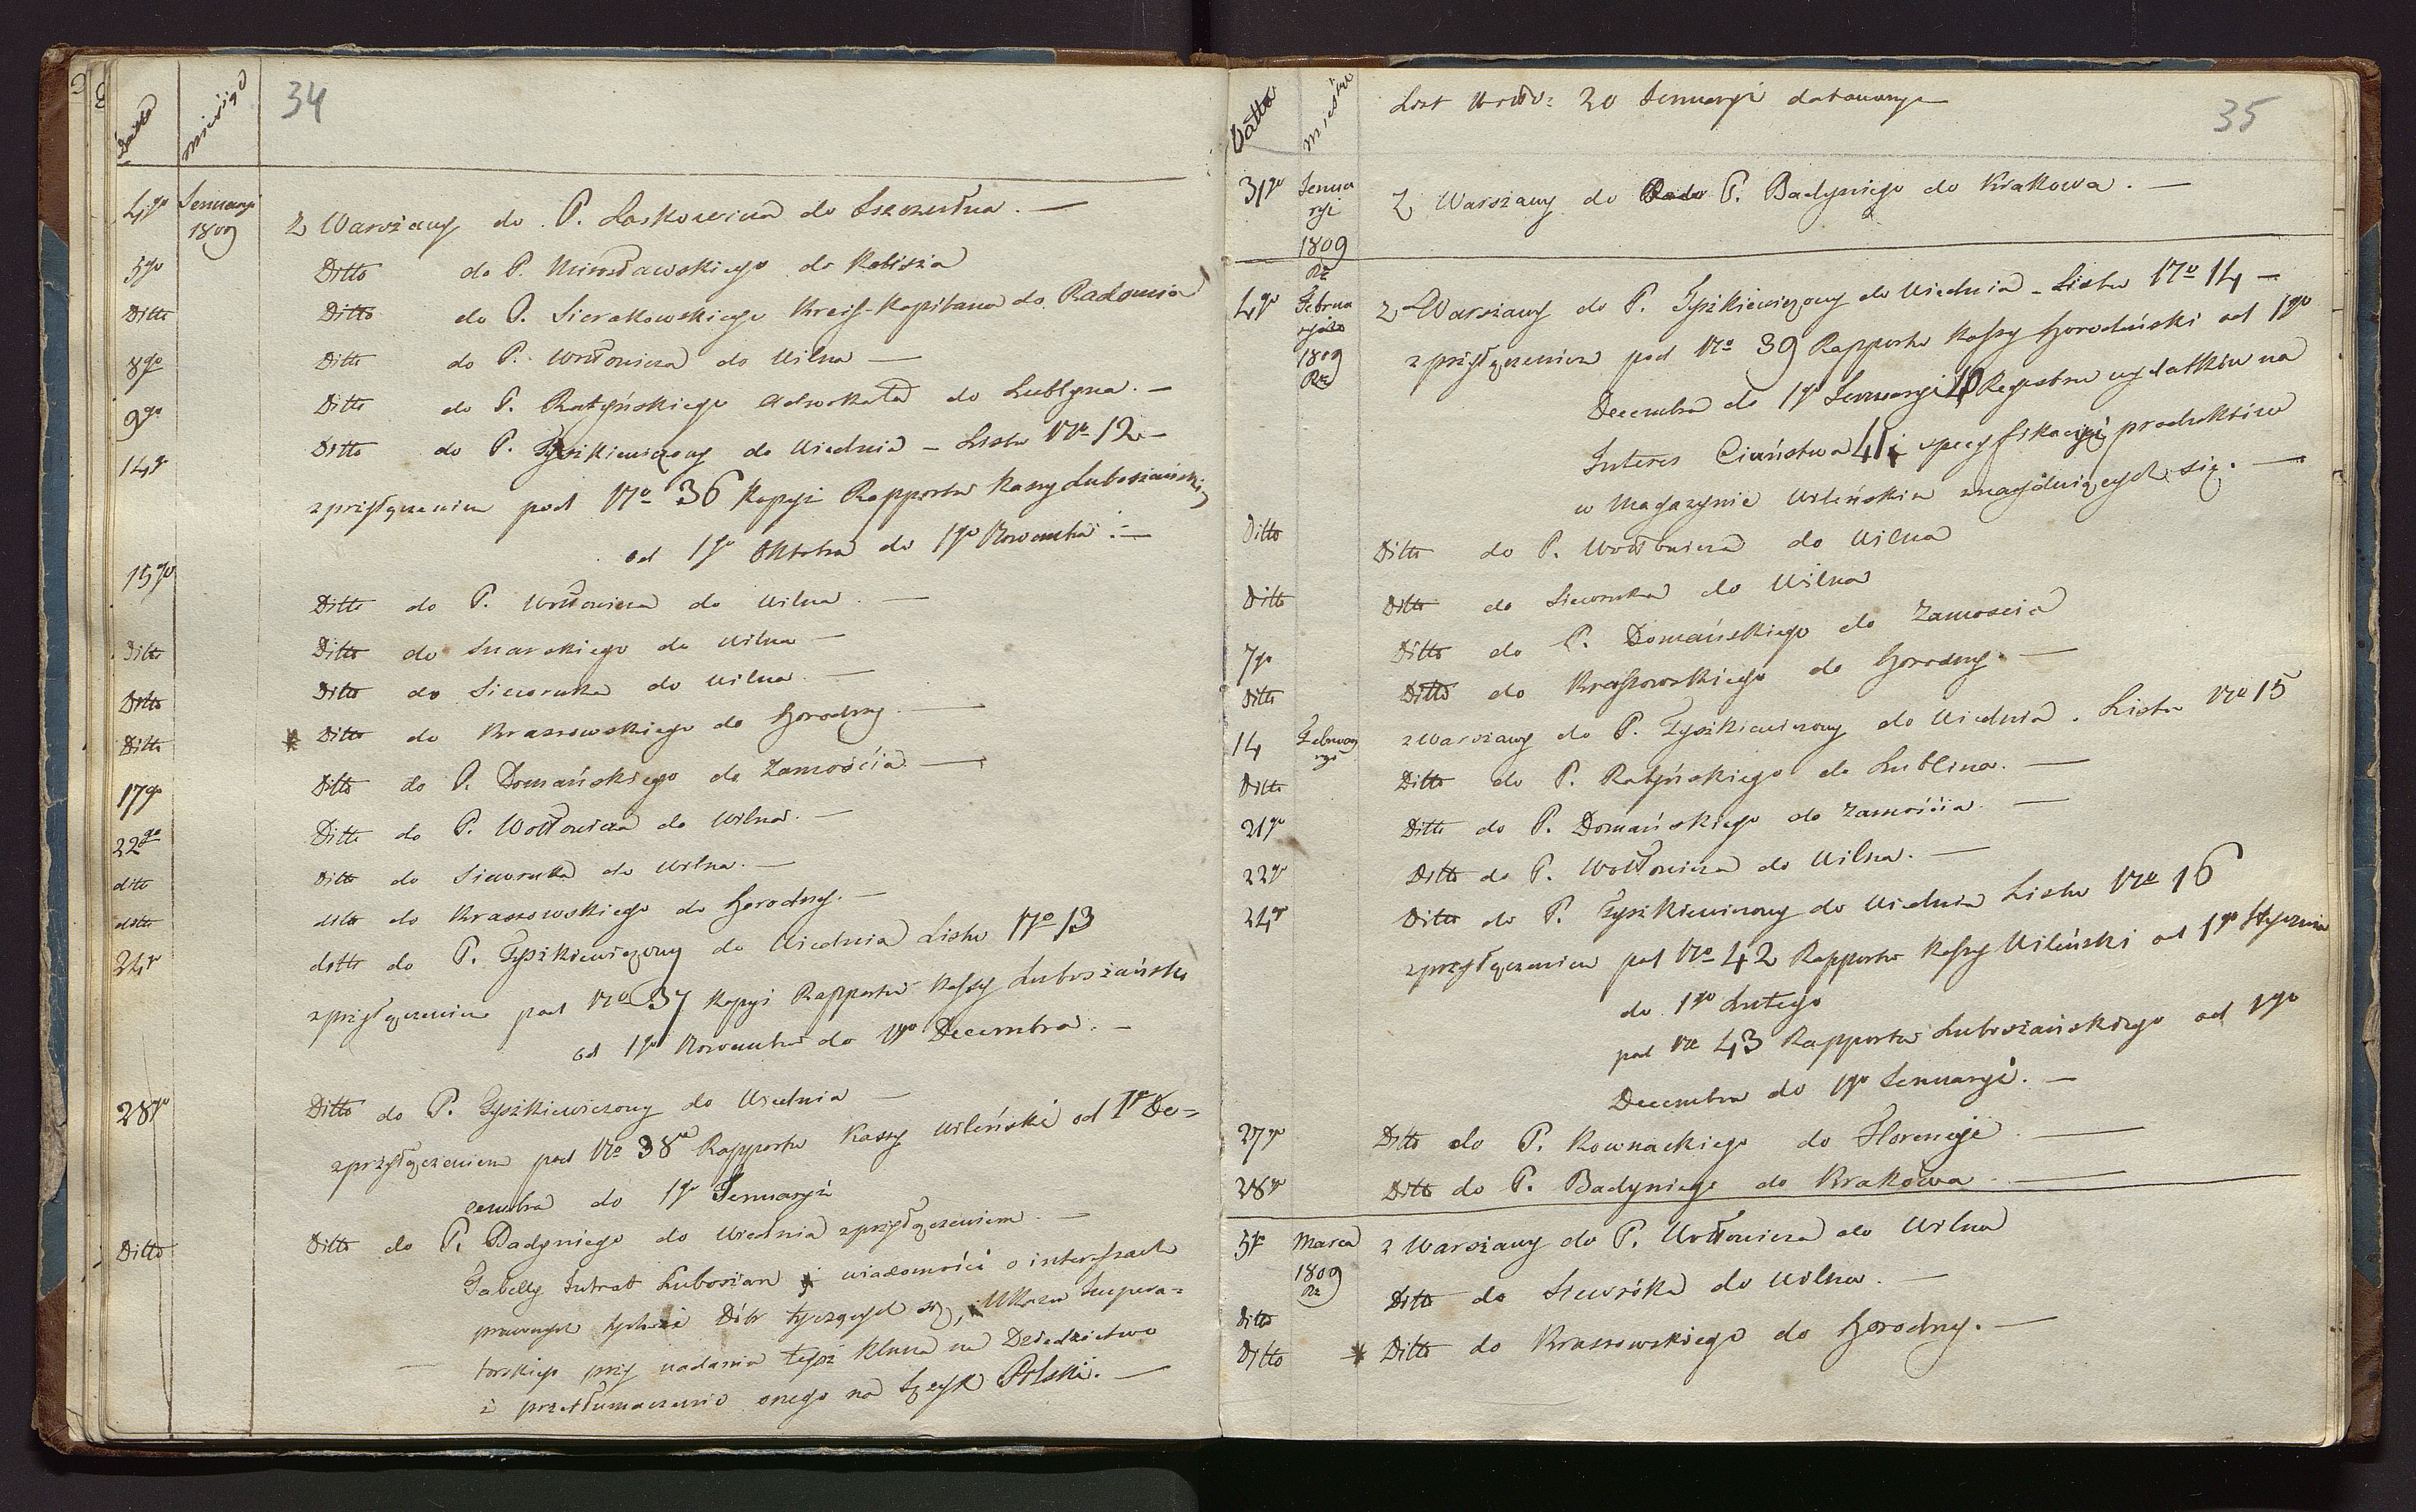 34
Datta Miesiąc
4go Jenuaryi 1809 Z Warszawy do P. Laskowicza do Szczuczyna. —
5go Ditto do P. Mirosławskiego do Kalisza
Ditto Ditto do P. Sierakowskiego Kreis-Kapitana do Radomia
8go Ditto do P. Wołłowicza do Wilna —
9go Ditto do P. Ratyńskiego Adwokata do Lublyna. —
14go Ditto do P. Tyszkiewiczowy do Wiednia – Listu No 12 –
z przyłączeniem pod No 36 Kopyi Rapportu Kassy Luboszański
od 1go Oktobra do 1go Nowembra. —
15go Ditto do P. Wołłowicza do Wilna. —
Ditto Ditto do Suarskiego do Wilna —
Ditto Ditto do Siewruka do Wilna. —
Ditto * Ditto do Krassowskiego do Horodny. —
17go Ditto do P. Domańskiego do Zamościa —
22go Ditto do P. Wołłowicza do Wilna. —
ditto Ditto do Siewruka do Wilna. —
ditto ditto do Krassowskiego do Horodny. —
24go ditto do P. Tyszkiewiczowy do Wiednia Listu No 13
z przyłączeniem pod No 37 Kopyi Rapportu Kassy Luboszański
od 1go Nowembra do 1go Decembra. —
28go Ditto do P. Tyszkiewiczowy do Wiednia —
z przyłączeniem pod No 38 Rapportu Kassy Wileński od 1go De=
cembra do 1go Jenuaryi
Ditto Ditto do P. Badyniego do Wiednia z przyłączeniem —
Tabelly Intrat Luboszan i wiadomości o interessach
prawnych tychże Dóbr tyczących się, Ukazu Impera=
torskiego przy nadania tegoż Klucza na Dziedzictwo
i przetłumaczenie onego na Język Polski. —
35
Datta Miesiąc
List 20 Jenuaryi datowany —
31go Jenuaryi 1809 Z Warszawy do P. Badyniego do Krakowa. —
4go Februaryi 1809 Z Warszawy do P. Tyszkiewiczowy do Wiednia – Listu No 14 –
z przyłączeniem pod No 39 Rapportu Kassy Horodański od 1go
Decembra do 1go Jenuaryi 40 Regestru wydatków na
Interes Ciaństwa 41 i specyfikacyi produktów
w Magazynie Wileńskim znayduiących się. —
Ditto Ditto do P. Wołłowicza do Wilna
Ditto Ditto do Siewruka do Wilna
7go Ditto do P. Domańskiego do Zamoscia
Ditto Ditto do Krassowskiego do Horodny. —
14 Februaryi z Warszawy do P. Tyszkiewiczowy do Wiednia. Listu No 15
Ditto Ditto do P. Ratyńskiego do Lublina. —
21go Ditto do P. Domańskiego do Zamościa. —
22go Ditto do P. Wołłowicza do Wilna. —
24go Ditto do P. Tyszkiewiczowy do Wiednia Listu No 16
z przyłączeniem pod No 42 Rapportu Kassy Wileński od 1go Stycznia
do 1go Lutego
pod No 43 Rapportu Luboszańskiego od 1go
Decembra do 1go Jenuaryi. —
27go Ditto do P. Kownackiego do Florencyi. —
28go Ditto do P. Badyniego do Krakowa. —
5go Marca 1809 z Warszawy do P. Wołłowicza do Wilna
Ditto Ditto do Siewróka do Wilna. —
Ditto * Ditto do Krassowskiego do Horodny. —